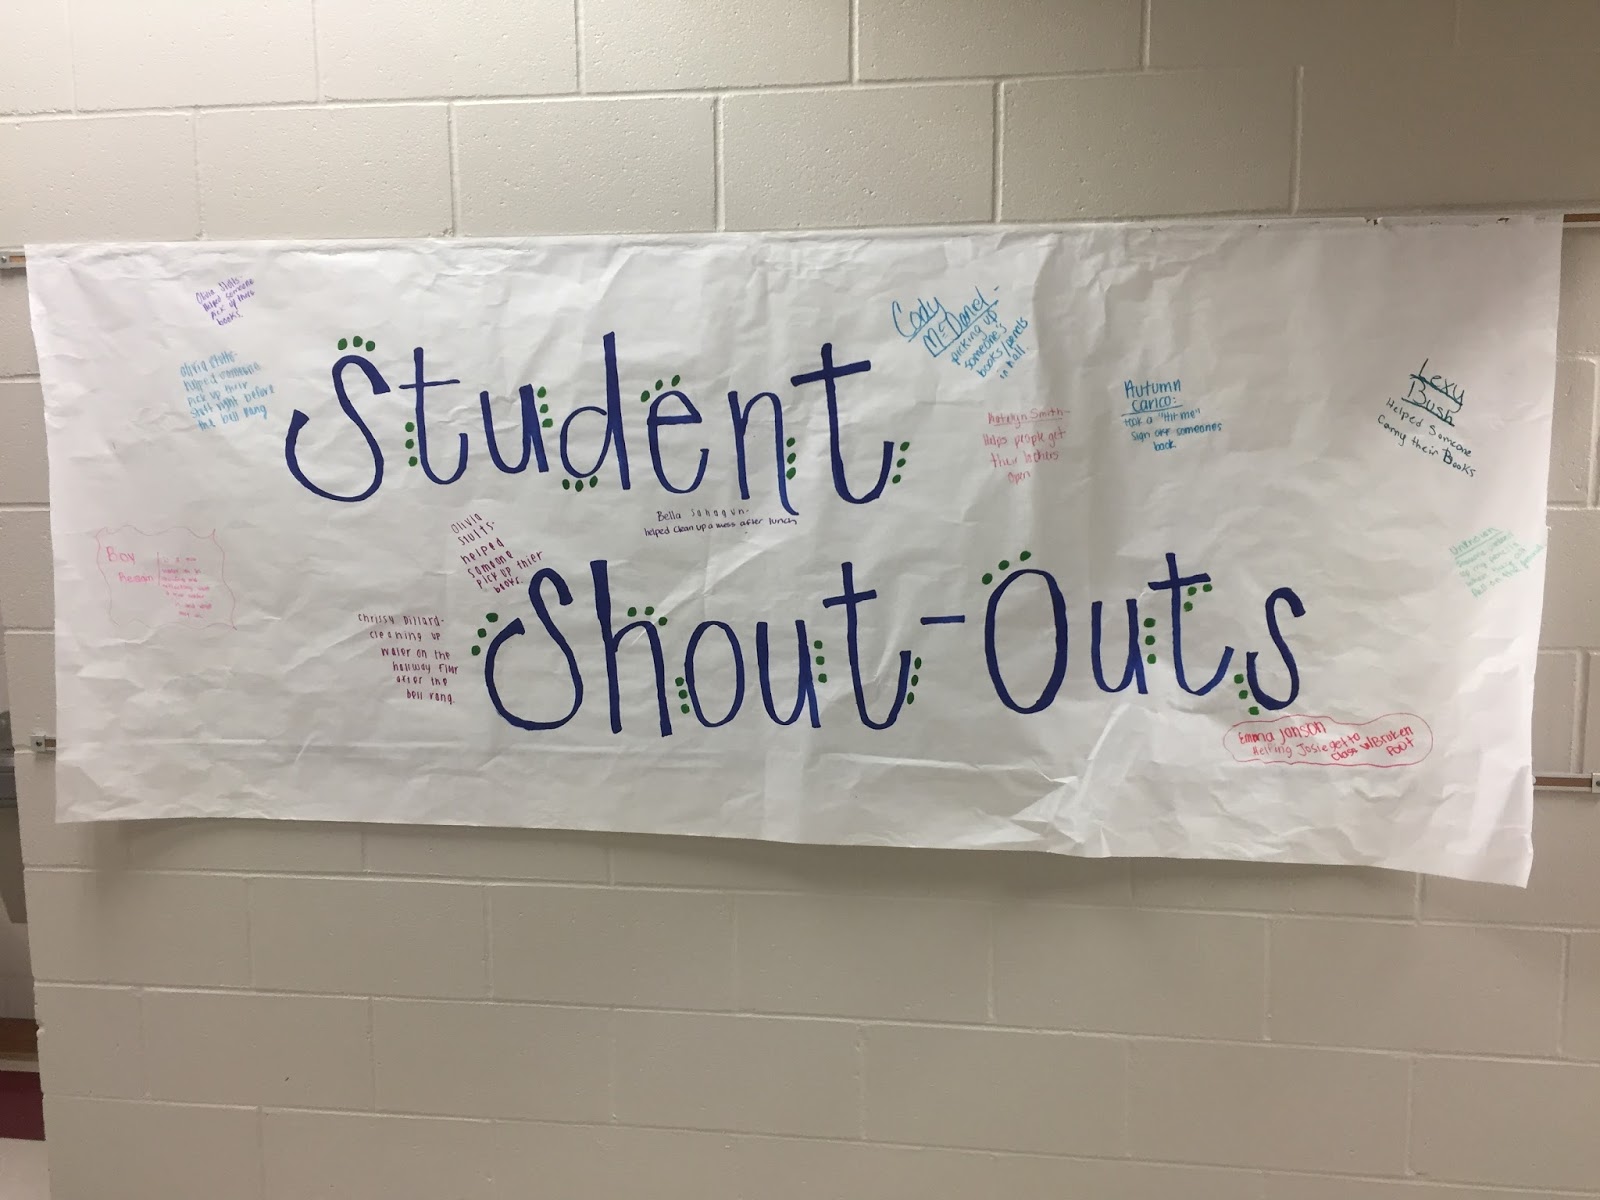 Student
Shout-Outs
Olivia Stults-
Helped someone
Pick up thier
books.
Olivia Stults-
helped someone
pick up their
stuff right before
the bell rang
Cody
McDaniel-
picking up
someone's
books/pencils
in hall.
Katelyn Smith-
Helps people get
their lockers
open
Autumn
Carico:
took a "Hit me"
sign off someones
back.
Lexy
Bush
Helped Someone
Carry their Books
Bella Sahagun-
helped clean up a mess after lunch
Olivia
Stults-
helped
someone
pick up thier
books.
Chrissy Dillard-
cleaning up
water on the
hallway floor
after the
bell rang.
Unknown
Emma Janson
Helping Josie get to
class w/Broken
Foot